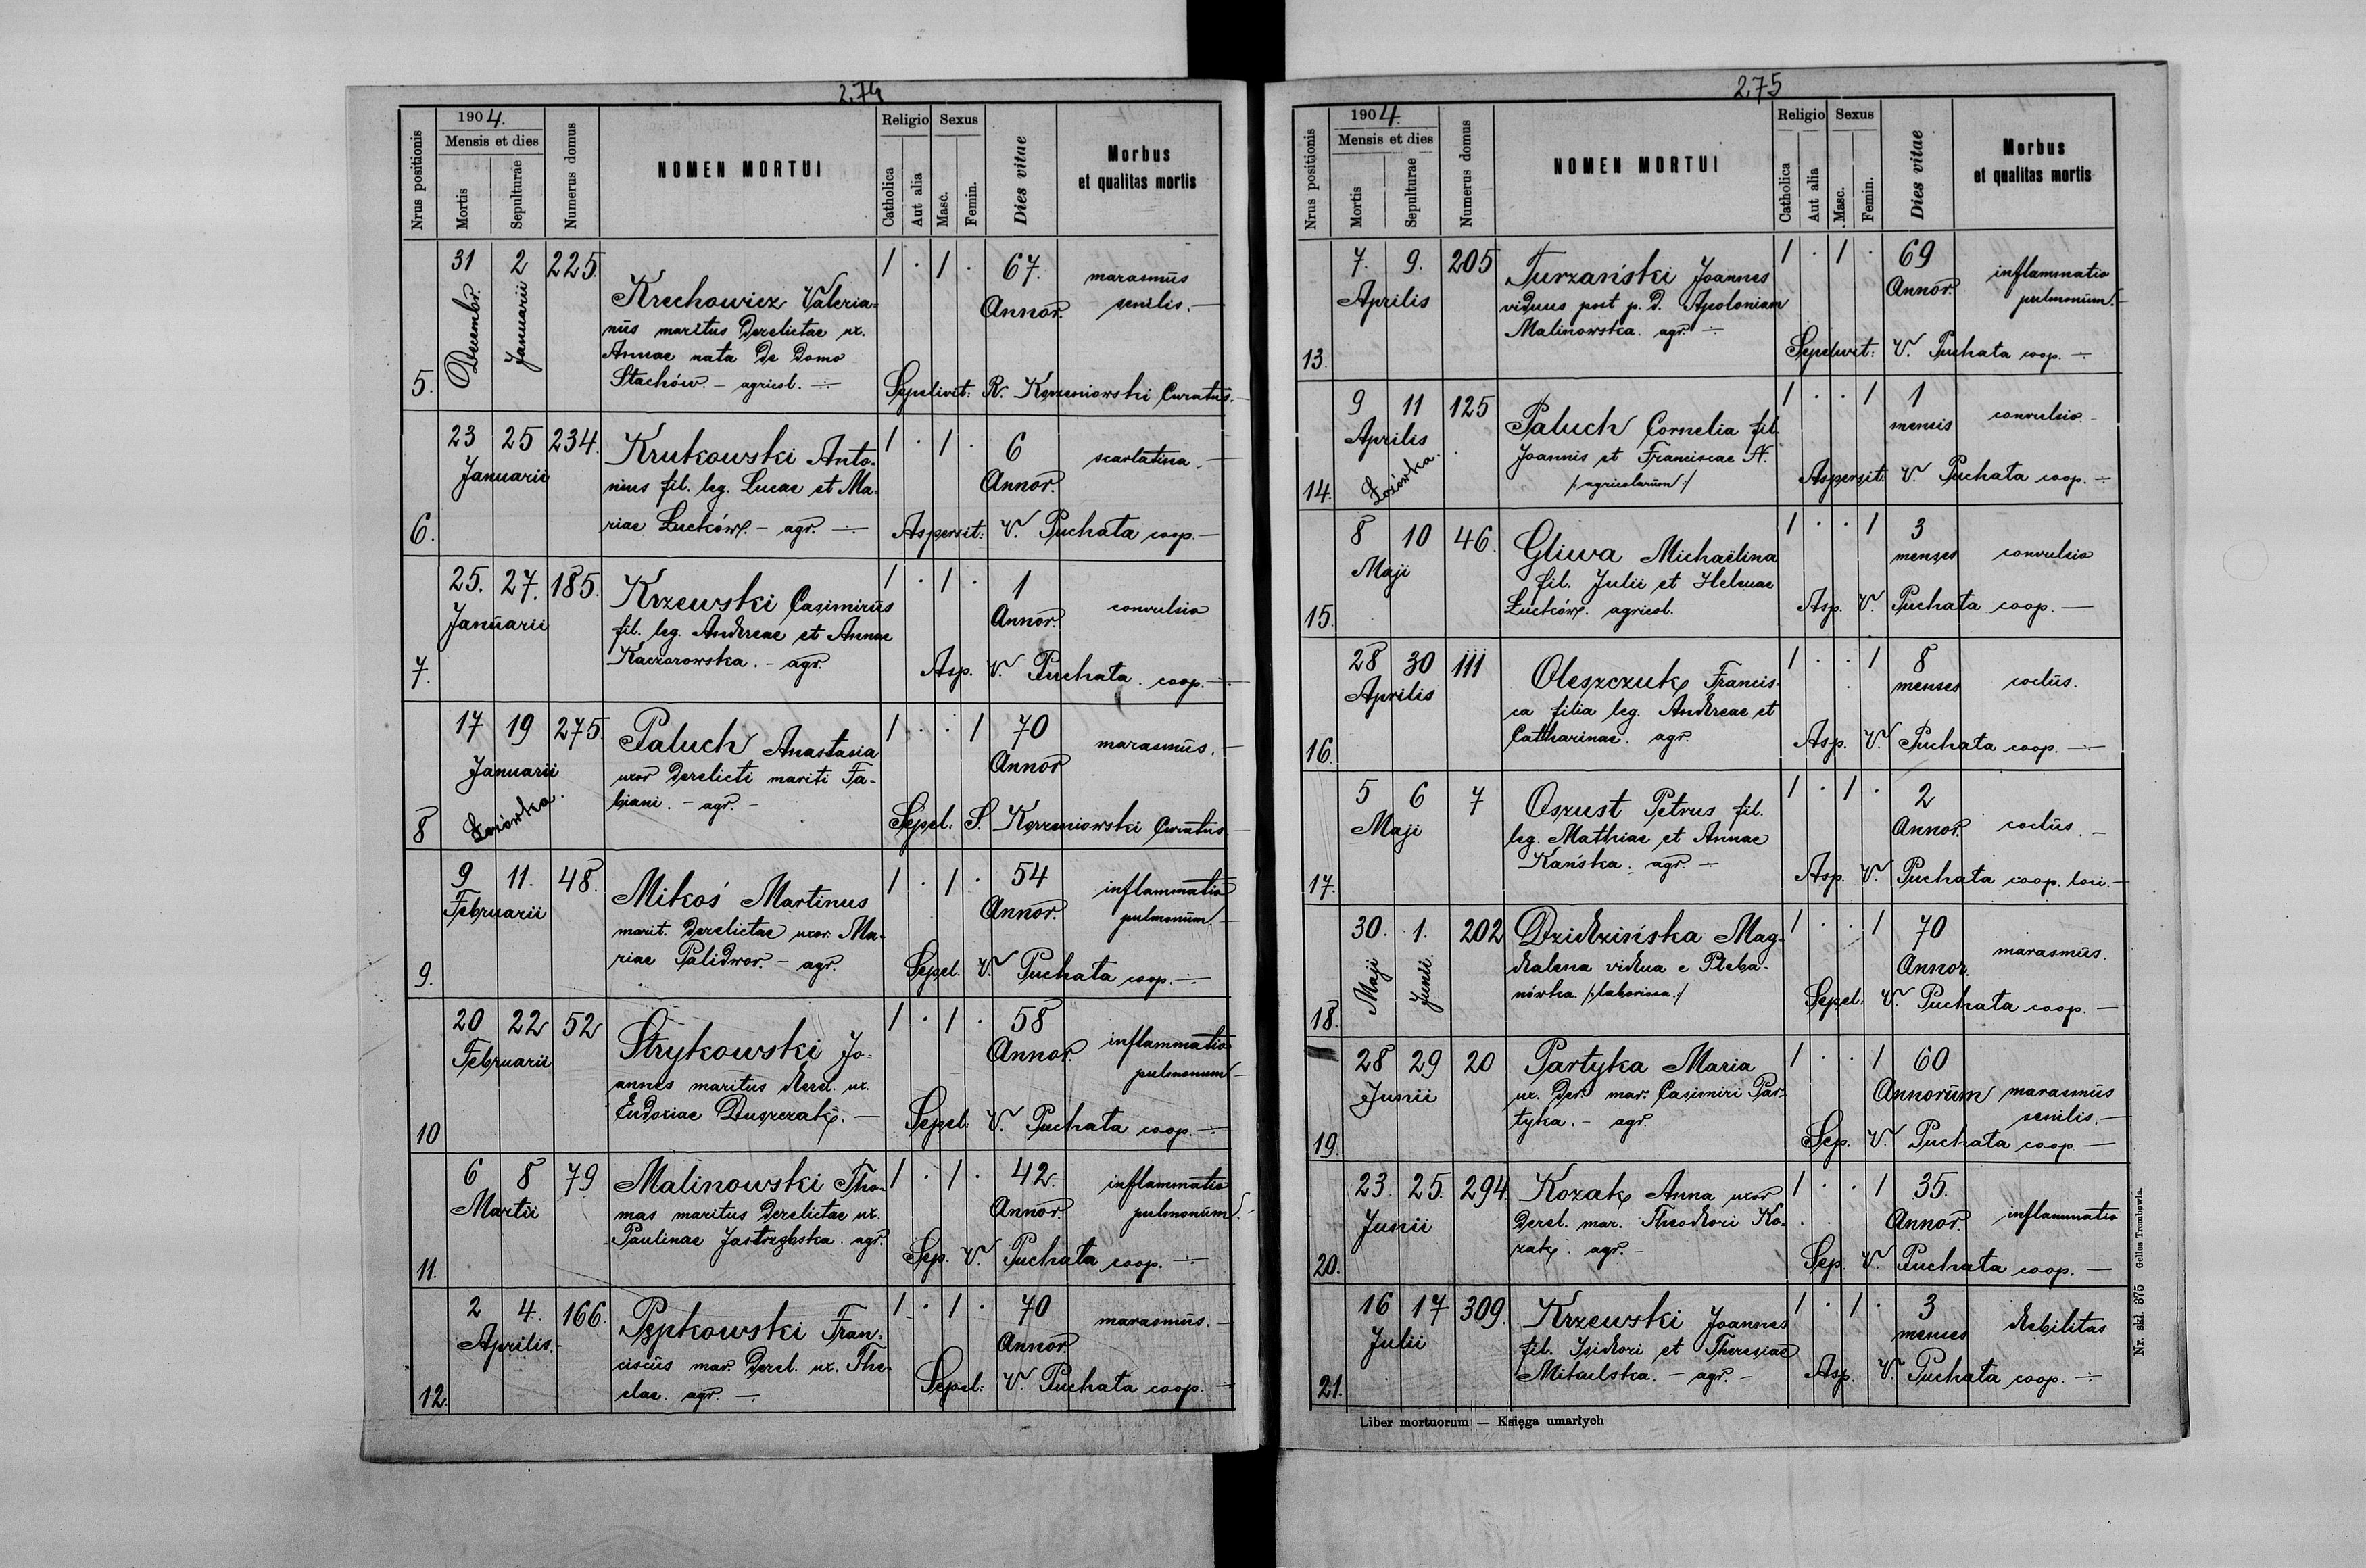 274
1904.
Mensis et dies
Nrus positionis
Mortis
Sepulturae
Numerus domus
NOMEN MORTUI
Religio
Sexus
Catholica
Aut alia
Masc.
Femin.
Dies vitae
Morbus
et qualitas mortis
31 2 225. 1 . 1 . 67.
Decembr. Januarii
Krechowicz Valeria-
nus maritus derelictae ux.
Annae nata de domo
Stachów. - agricol. -
Annor.
marasmus
senilis. -
5.
Sepelivit: R. Korzeniowski Curatus. -
23 25 234. 1 . 1 . 6
Januarii
Krukowski Anto-
nius fil. leg. Lucae et Ma-
riae Łucków. - agr. -
Annor.
scarlatina. -
6.
Aspersit: V. Puchata coop. -
25. 27. 185. 1 . 1 . 1
Januarii
Krzewski Casimirus
fil. leg. Andreae et Annae
Kaczorowska. - agr.
Annor.
convulsio
7.
Asp. V. Puchata coop. -
17 19 275. 1 . . 1 70
Januarii
Łozówka.
Paluch Anastasia
uxor derelicti mariti Fa-
biani. - agr. -
Annor
marasmus. -
8
Sepel. S. Korzeniowski Curatus -
9 11. 48. 1 . 1 . 54
Februarii
Mikoś Martinus
marit. derelictae uxor. Ma-
riae Palidwor. - agr.
Annor.
inflammatio
pulmonum. -
9.
Sepel. V. Puchata coop. -
20 22 52 1 . 1 . 58
Februarii
Strykowski Jo-
annes maritus derel. ux.
Eudoxiae Duszczak. -
Annor.
inflammatio
pulmonum -
10
Sepel: V. Puchata coop. -
6 8 79 1 . 1 . 42.
Martii
Malinowski Tho-
mas maritus derelictae ux.
Paulinae Jastrzębska. agr.
Annor.
inflammatio
pulmonum. -
11.
Sep. V. Puchata coop. -
2 4. 166. 1 . 1 . 70
Aprilis. -
Pępkowski Fran-
ciscus mar. derel. ux. The-
clae. agr. -
Annor.
marasmus. -
12.
Sepel: V. Puchata coop. -
275
1904.
Mensis et dies
Nrus positionis
Mortis
Sepulturae
Numerus domus
NOMEN MORTUI
Religio
Sexus
Catholica
Aut alia
Masc.
Femin.
Dies vitae
Morbus
et qualitas mortis
7. 9. 205 1 . 1 . 69
Aprilis
Turzański Joannes
viduus post p. d. Apoloniam
Malinowska. agr. -
Annor.
inflammatio
pulmonum. -
13.
Sepelivit: V. Puchata coop. -
9 11 125 1 . . 1 1
Aprilis
Łozówka.
Paluch Cornelia fil.
Joannis et Franciscae N.
/: agricolarum :/
mensis
convulsio. -
14.
Aspersit: V. Puchata coop. -
8 10 46. 1 . . 1 3
Maji
Gliwa Michaëlina
fil. Julii et Helenae
Łucków. agricol.
menses
convulsio
15.
Asp. V. Puchata coop. -
28 30 111 1 . . 1 8
Aprilis
Oleszczuk Francis-
ca filia leg. Andreae et
Catharinae. agr.
menses
coclus.
16.
Asp. V. Puchata coop. -
5 6 7 1 . 1 . 2
Maji
Oszust Petrus fil.
leg. Mathiae et Annae
Kańska. agr. -
Annor.
coclus. -
17.
Asp. V. Puchata coop. loci. -
30. 1. 202 1 . . 1 70
Maji Junii.
Dzidzińska Mag-
dalena vidua e Pleba-
nówka. /: laboriosa :/
Annor.
marasmus.
18.
Sepel. V. Puchata coop. -
28 29 20 1 . . 1 60
Junii
Partyka Maria
ux. der. mar. Casimiri Par-
tyka. - agr.
Annorum
marasmus
senilis. -
19.
Sep. V. Puchata coop. -
23. 25. 294 1 . . 1 35.
Junii
Kozak Anna uxor
derel. mar. Theodori Ko-
zak. agr. -
Annor.
inflammatio
20.
Sep. V. Puchata coop. -
16 17 309. 1 . 1 . 3
Julii
Krzewski Joannes
fil. Isidori et Theresiae
Mikulska. - agr. -
menses
debilitas
21.
Asp. V. Puchata coop. -
Liber mortuorum — Księga umarłych
Nr. skl. 375 Gelles Trembowla.